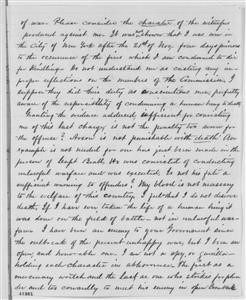 of war. Please consider the character of the witnesses
produced against me. It was shewn that I was now in
the City of New York after the 25th of Nov. four days previous
to the occurrence of the fires which I am condemned to die
for kindling. Do not understand me as casting any im-
proper reflections on the members of the Commission, I
suppose they did their duty as conscientious men properly
aware of the responsibility of condemning a human being to death
Granting the evidence adduced sufficient for convicting
me of this last charge is not the penalty too severe for
the offence? Arson is not punishable with death. An
example is not needed for one has just been made in the
person of Capt Beall. He was convicted of conducting
unlawful warfare and was executed. Is not his fate a
sufficient warning to offenders? My blood is not necessary
to the welfare of this country, I feel that I do not deserve
death. If I have ever taken the life of a human being it
was done on the field of battle - not in unlawful war-
fare. I have been an enemy to your Government since
the outbreak of the present unhappy war but I have been an
open and honorable one. I am not a spy, or guerilla -
holding each character in abhorrence. The first as a
mercenary wretch and the last as one who strikes for plun-
der and too cowardly to meet his enemy in open combat
41981